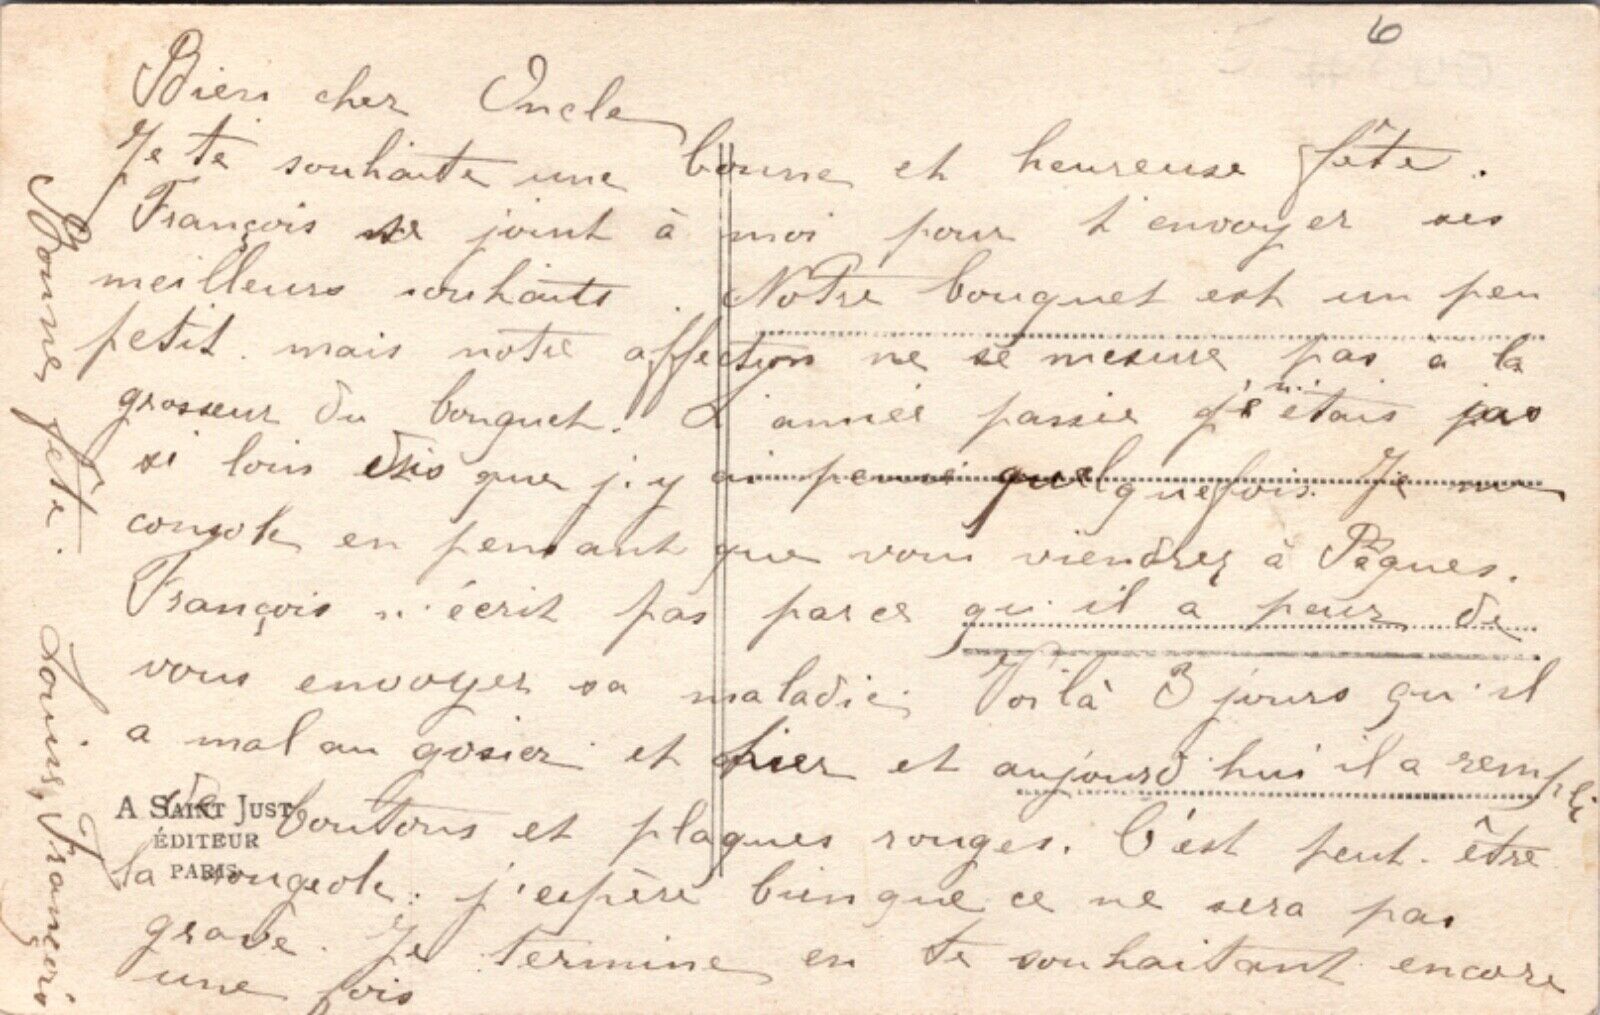 6
Bien cher Oncle
Je te souhaite une bonne et heureuse fête.
François se joint à moi pour t'envoyer ses
meilleurs souhaits. Notre bouquet est un peu
petit. mais notre affection ne se mesure pas à la
grosseur du bouquet. L'année passée je n'étais pas
si loin que j'y ai pensé quelquefois. Je me
console en pensant que vous viendrez à Pâques.
François n'écrit pas parce qu'il a peur de
vous envoyer sa maladie. Voilà 3 jours qu'il
a mal au gosier et hier et aujourd'hui il a rempli
de boutons et plaques rouges. C'est peut-être
la rougeole. j'espère bien que ce ne sera pas
grave. Je termine en te souhaitant encore
une fois
Bonne fête. Louis, François
A SAINT JUST
ÉDITEUR
PARIS